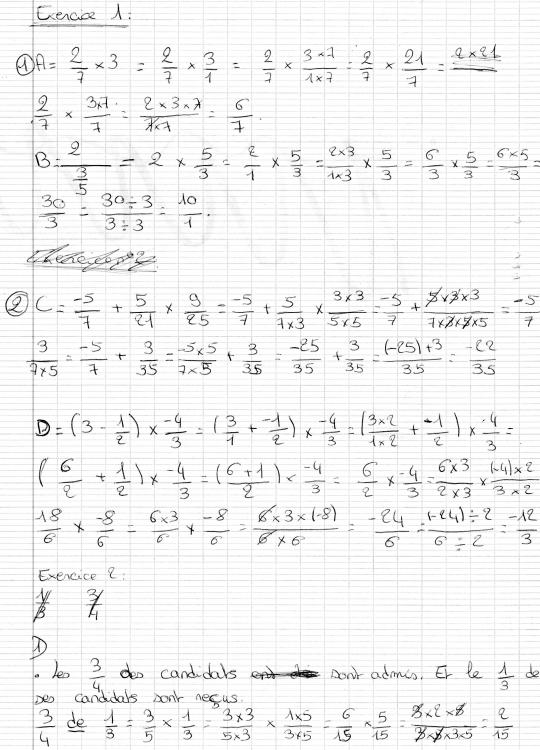 Exercice 1:
① A = 2/7 × 3 = 2/7 × 3/1 = 2/7 × 3×7/1×7 = 2/7 × 21/7 = 2×21
2/7 × 3×7/7 = 2×3×7/7×7 = 6/7.
B = 2/(3/5) = 2 × 5/3 = 2/1 × 5/3 = 2×3/1×3 × 5/3 = 6/3 × 5/3 = 6×5/3 =
30/3 = 30÷3/3÷3 = 10/1.
② C = -5/7 + 5/21 × 9/25 = -5/7 + 5/7×3 × 3×3/5×5 = -5/7 + 5×3×3/7×3×5×5 = -5/7
3/7×5 = -5/7 + 3/35 = -5×5/7×5 + 3/35 = -25/35 + 3/35 = (-25)+3/35 = -22/35
D = (3 - 1/2) × -4/3 = (3/1 + -1/2) × -4/3 = (3×2/1×2 + -1/2) × -4/3 =
(6/2 + 1/2) × -4/3 = (6+1/2) × -4/3 = 6/2 × -4/3 = 6×3/2×3 × (-4)×2/3×2
18/6 × -8/6 = 6×3/6 × -8/6 = 6×3×(-8)/6×6 = -24/6 = (-24)÷2/6÷2 = -12/3
Exercice 2:
1/3 3/4
1)
. Les 3/4 des candidats sont admis. Et le 1/3 de
ses candidats sont reçus.
3/4 de 1/3 = 3/5 × 1/3 = 3×3/5×3 × 1×5/3×5 = 6/15 × 5/15 = 3×2×5/3×5×3×5 = 2/15